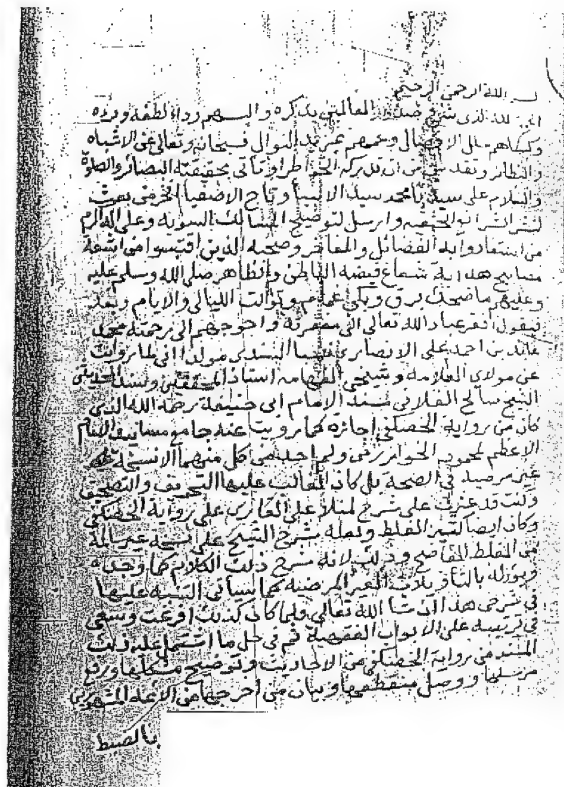 بسم الله الرحمن الرحيم
الحمد لله الذي شرح صدور العالمين بذكره والبسهم رداء لطفه ووده
وكساهم حلل الافضال وعمهم بمزيد النوال فسبحانه وتعالى عن الاشباه
والنظائر وتقدس من ان تدركه الخواطر او تأتي بحقيقته البصائر والصلوة
والسلام على سيدنا محمد سيد الانبيا وتاج الاصفيا الذي بعث
لنشر الشرائع الحنيفه وارسل لتوضيح المسالك السويه وعلى اله الذين
من استفادوا به الفضائل والمفاخر وصحبه الذين اقتبسوا من اشعة
مصابيح هدايه شعاع فيضه الباطن والظاهر صلى الله وسلم عليه
وعليهم ما ضحك برق وبكى غمام وتوالت الليالي والايام وبعد
فيقول افقر عباد الله تعالى الى مغفرته واحوجهم الى رحمته محمد
عابد بن احمد علي الانصاري نسبا السندي مولدا اني لما رويت
عن مولاي العلامه وشيخي الفهامه استاذ المحققين وسند المحدثين
الشيخ صالح الفلاني مسند الامام ابي حنيفة رحمه الله الذي
كان من رواية الحصكفي اجازة كما رويت عنه جامع مسانيد الامام
الاعظم لمحمد الخوارزمي ولم اجد من كل منهما الا نسخة
غير مرضية في الصحة بل كان الغالب عليها التحريف والتصحيف
وكنت قد عثرت على شرح لمنلا علي القاري على رواية الحصكفي
وكان ايضا كثير الغلط ولعله شرح الشيخ على نسخة غير سالمة
من الغلط الفاضح وذلك لانه شرح ذلك الكلام كما وجده
ويؤوله بالتاويلات الغير المرضيه كما سياتي التنبيه عليها
في شرحي هذا ان شا الله تعالى ولما كان كذلك افرغت وسعي
في ترتيبه على الابواب الفقهية ثم في حل ما اشتمل عليه ذلك
المسند من رواية الحصكفي من الاحاديث وتوضيح مشكلها ورفع
مرسلها ووصل منقطعها وبيان من اخرجها من الائمة المشهورين
بالضبط